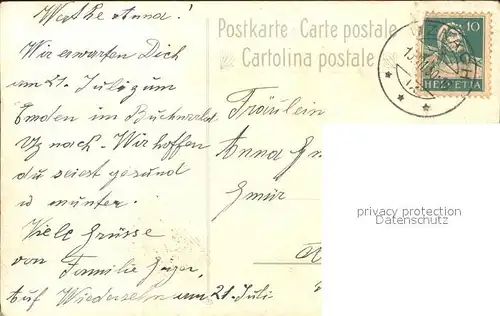 Werthe Anna!
Wir erwarten Dich
am 21. Juli zum
im Buchwald
Uznach. Wir hoffen
du seiest gesund
u munter.
Viele Grüsse
von Familie
Auf Wiedersehn am 21. Juli
Postkarte Carte postale
Cartolina postale
10
HELVETIA
Fräulein
Anna
Gmür
privacy protection
Datenschutz